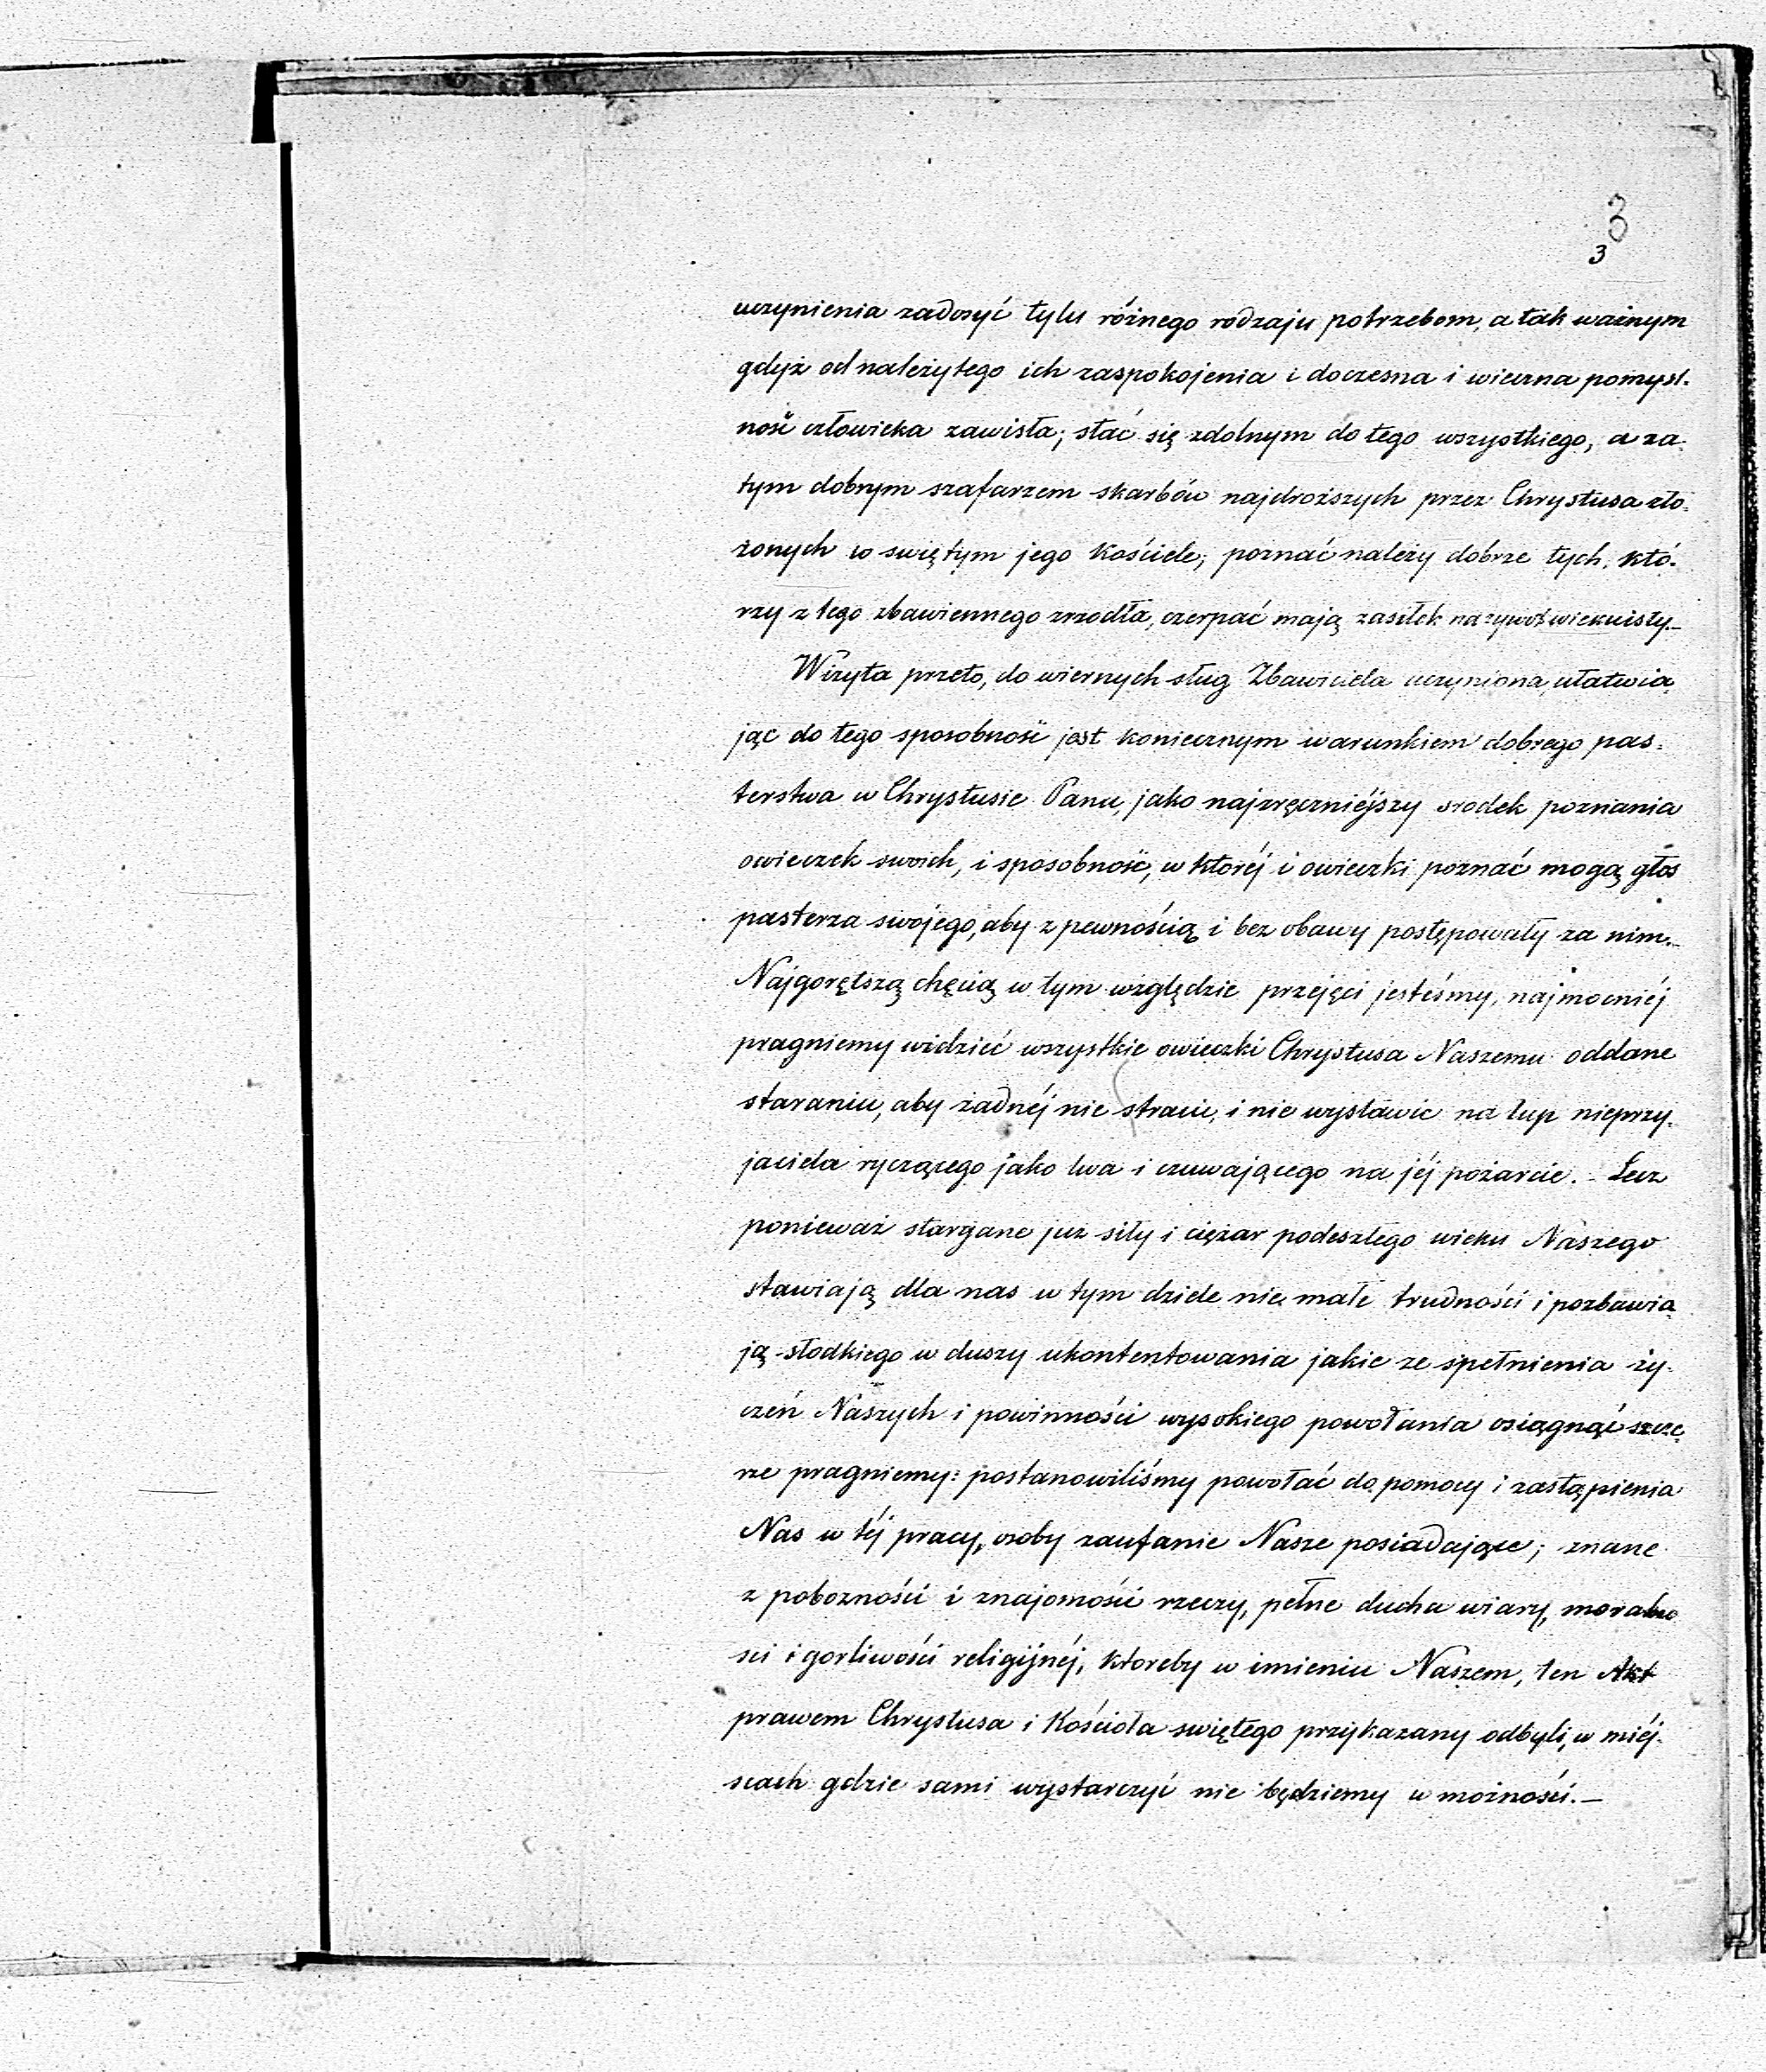 3
3
uczynienia zadosyć tylu różnego rodzaju potrzebom, a tak ważnym
gdyż od należytego ich zaspokojenia i doczesna i wieczna pomyśl-
ność człowieka zawisła; stać się zdolnym do tego wszystkiego, a za-
tym dobrym szafarzem skarbów najdroższych przez Chrystusa zło-
żonych w swiętym jego Kościele; poznać należy dobrze tych, któ-
rzy z tego zbawiennego zrzodła, czerpać mają zasiłek na żywot wiekuisty.—
Wizyta przeto, do wiernych sług Zbawiciela uczyniona, ułatwia-
jąc do tego sposobność jest koniecznym warunkiem dobrego pas-
terstwa w Chrystusie Panu, jako najzręczniéjszy srodek poznania
owieczek swoich, i sposobność, w któréj i owieczki poznać mogą głos
pasterza swojego, aby z pewnością i bez obawy postępowały za nim.—
Najgorętszą chęcią w tym względzie przejęci jesteśmy, najmocniéj
pragniemy widzieć wszystkie owieczki Chrystusa Naszemu oddane
staraniu, aby żadnéj nie stracić, i nie wystawic na łup nieprzy-
jaciela ryczącego jako lwa i czuwającego na jéj pożarcie. – Lecz
ponieważ stargane już siły i ciężar podeszłego wieku Naszego
stawiają dla nas w tym dziele nie małe trudności i pozbawia-
ją słodkiego w duszy ukontentowania jakie ze spełnienia ży-
czeń Naszych i powinności wysokiego powołania osiągnąć szcze-
rze pragniemy: postanowiliśmy powołać do pomocy i zastąpienia
Nas w téj pracy, osoby zaufanie Nasze posiadające; znane
z pobozności i znajomości rzeczy, pełne ducha wiary, moralno
sci i gorliwości religijnéj, ktoreby w imieniu Naszem, ten Akt
prawem Chrystusa i Kościoła swiętego przykazany odbyli, w miéj-
scach gdzie sami wystarczyć nie będziemy w możności.—